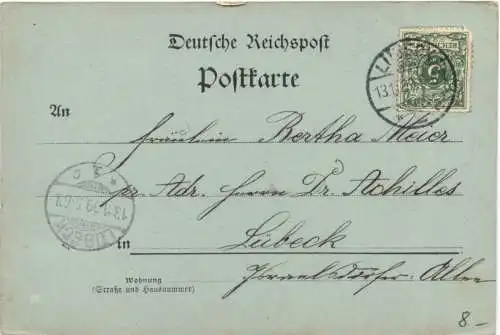 Deutsche Reichspost
Postkarte
LÜBECK
13.1
An
Fräulein Bertha Meier
pr. Adr. Herrn Dr. Achilles
LÜBECK
in Lübeck
Israelsdorfer Allee
Wohnung
(Straße und Hausnummer)
8-